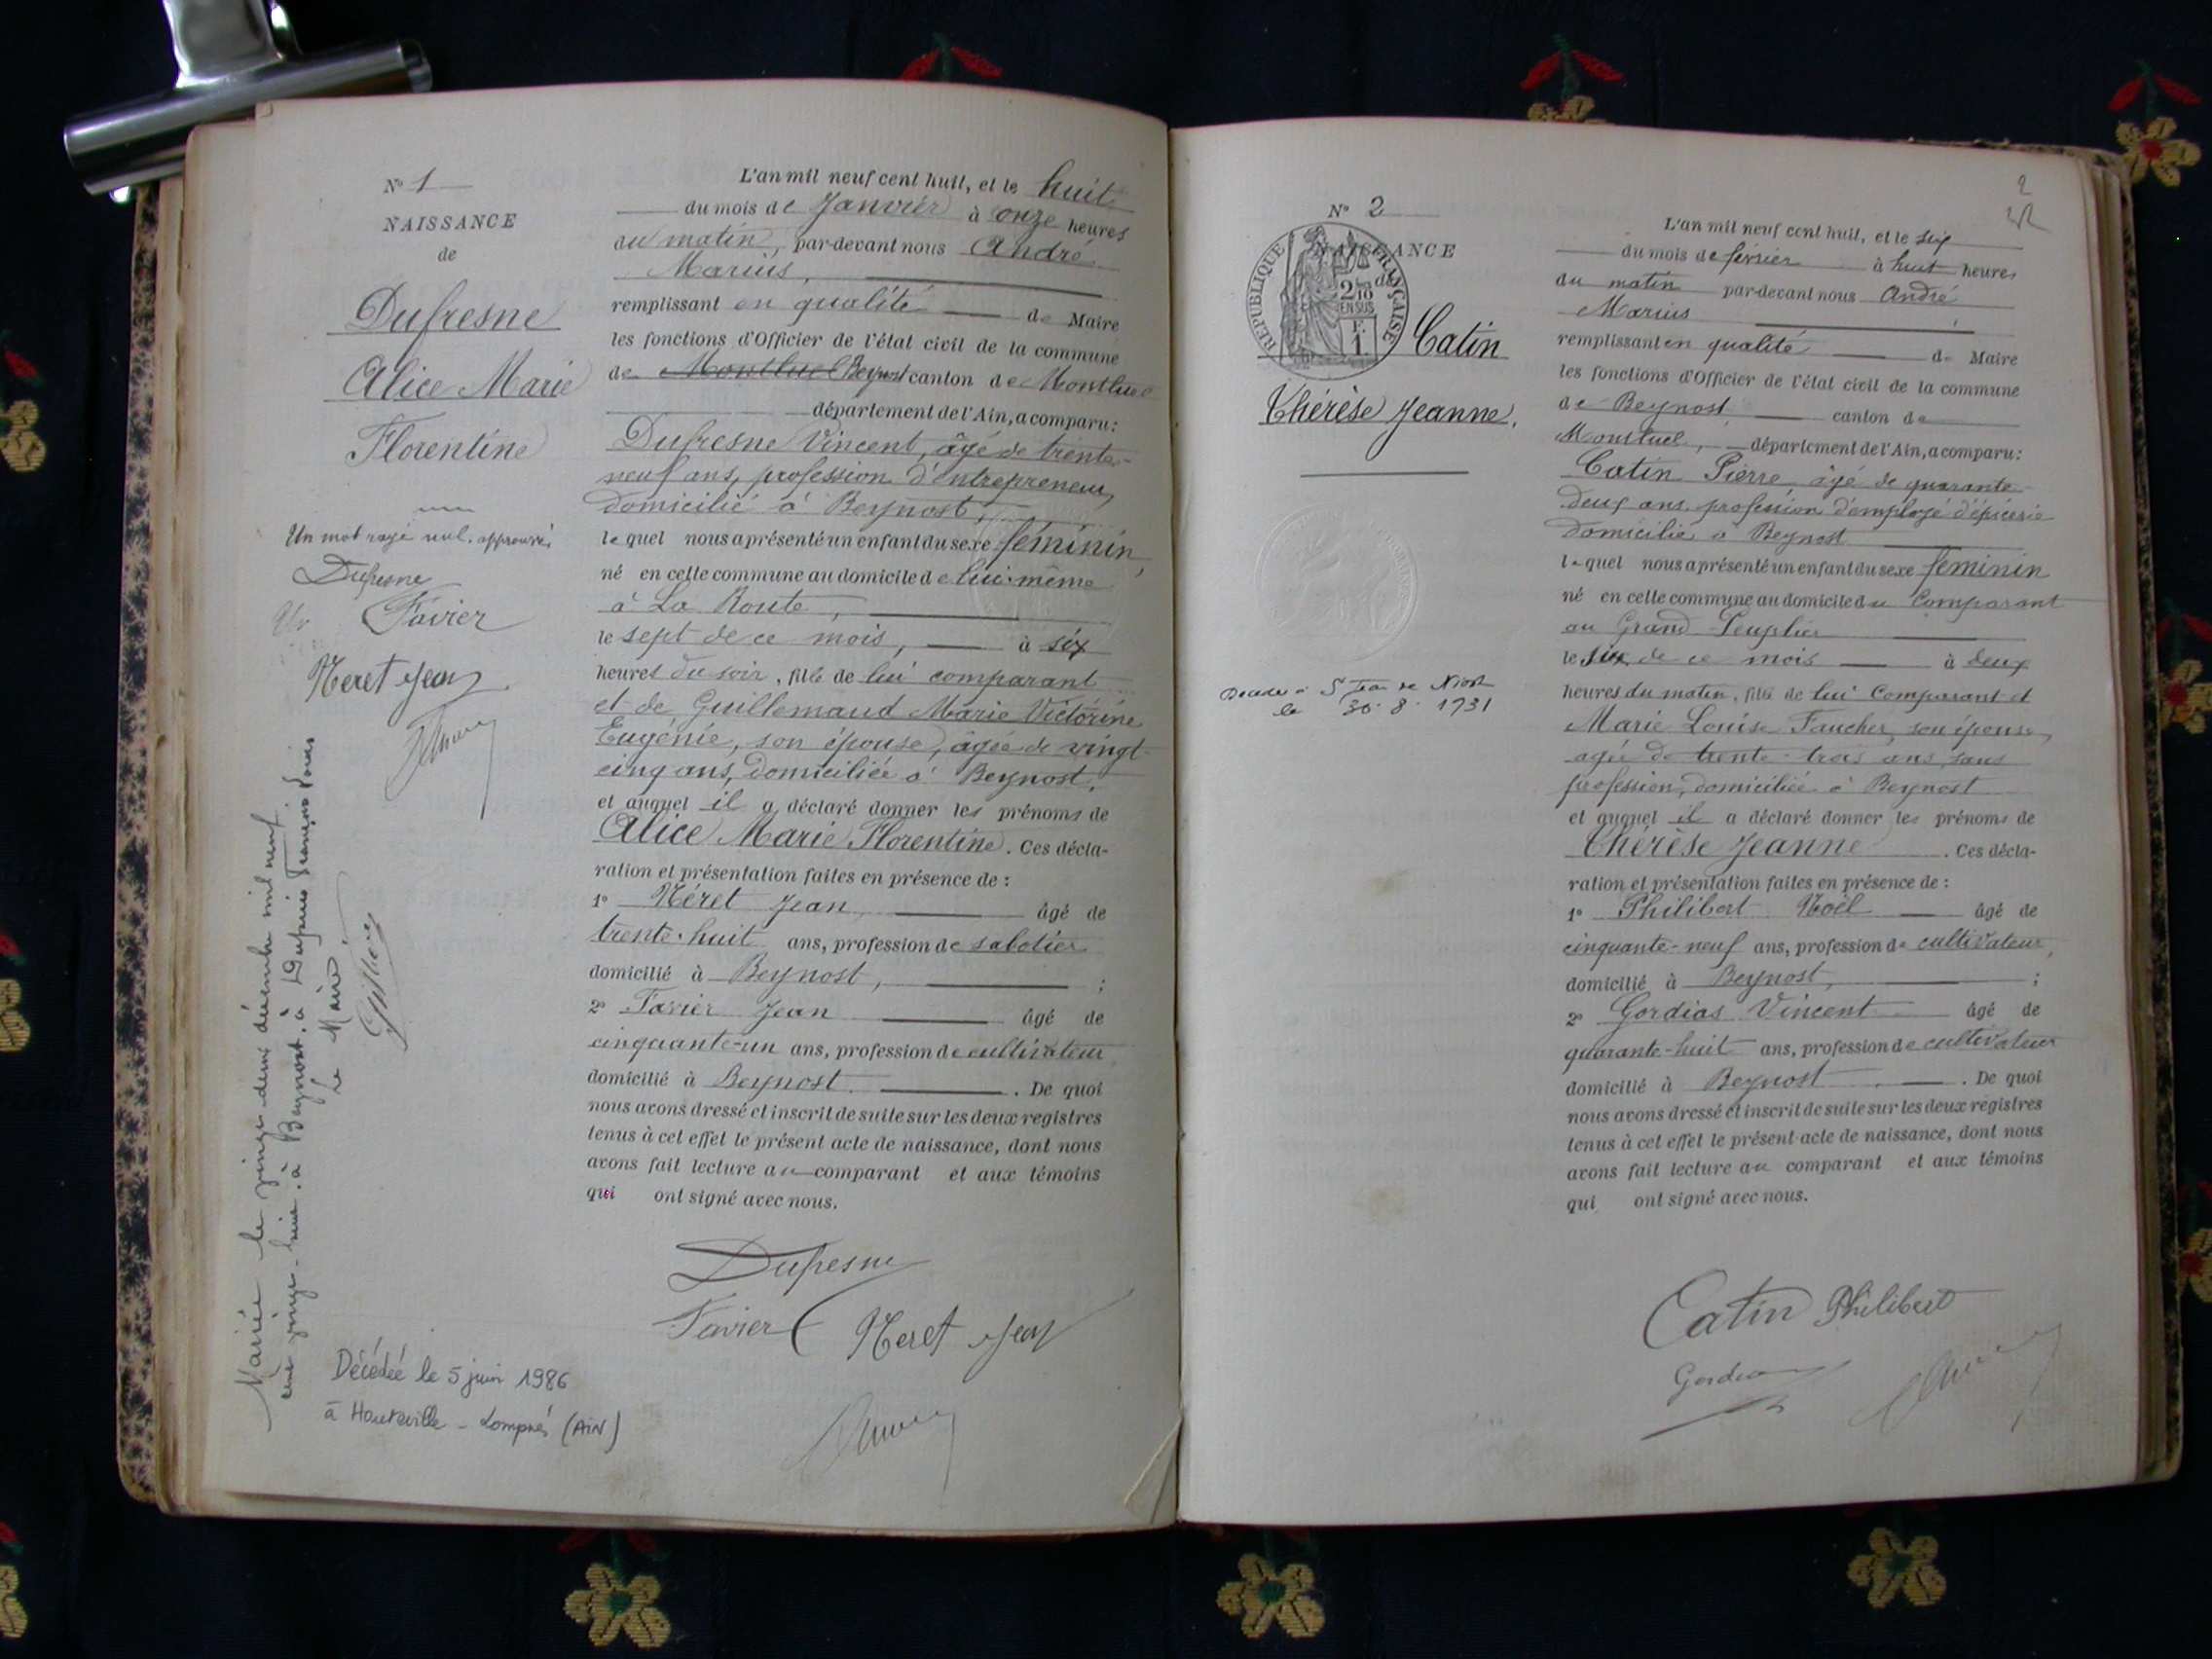 N° 1
NAISSANCE
de
Dufresne
Alice Marie
Florentine
Un mot rayé nul. approuvé
Dufresne
Favier
Neret Jean
Mariée le vingt-deux décembre mil neuf
cent vingt-huit, à Beynost, à Dupuis François Louis
Le Maire
Décédée le 5 juin 1986
à Hauteville - Lompnés (AIN)
L'an mil neuf cent huit, et le huit
du mois de Janvier à onze heures
du matin, par-devant nous André
Marius,
remplissant en qualité de Maire
les fonctions d'Officier de l'état civil de la commune
de Montluel Beynost canton de Montluel
département de l'Ain, a comparu:
Dufresne Vincent, âgé de trente-
neuf ans, profession d'entrepreneur,
domicilié à Beynost,
lequel nous a présenté un enfant du sexe féminin,
né en cette commune au domicile de lui-même
à La Route,
le sept de ce mois, à six
heures du soir, fille de lui comparant
et de Guillemaud Marie Victorine
Eugénie, son épouse, âgée de vingt-
cinq ans, domiciliée à Beynost,
et auquel il a déclaré donner les prénoms de
Alice Marie Florentine. Ces décla-
ration et présentation faites en présence de :
1° Néret Jean, âgé de
trente-huit ans, profession de sabotier
domicilié à Beynost, ;
2° Favier Jean âgé de
cinquante-un ans, profession de cultivateur
domicilié à Beynost. De quoi
nous avons dressé et inscrit de suite sur les deux registres
tenus à cet effet le présent acte de naissance, dont nous
avons fait lecture au comparant et aux témoins
qui ont signé avec nous.
Dufresne
Favier Neret Jean
2
N° 2
NAISSANCE
de
REPUBLIQUE FRANÇAISE
2/10
EN SUS
F.
1
Catin
Thérèse Jeanne.
Décédée à St Jean de Niost
le 30.8.1931
L'an mil neuf cent huit, et le six
du mois de février à huit heures
du matin par-devant nous André
Marius,
remplissant en qualité de Maire
les fonctions d'Officier de l'état civil de la commune
de Beynost, canton de
Montluel, département de l'Ain, a comparu:
Catin Pierre âgé de quarante
deux ans, profession d'employé d'épicerie
domicilié à Beynost
lequel nous a présenté un enfant du sexe féminin
né en cette commune au domicile du Comparant
au Grand Peuplier
le six de ce mois à deux
heures du matin, fille de lui Comparant et
Marie Louise Faucher, son épouse,
agée de trente-trois ans, sans
profession, domiciliée à Beynost
et auquel il a déclaré donner les prénoms de
Thérèse Jeanne. Ces décla-
ration et présentation faites en présence de :
1° Philibert Noël âgé de
cinquante-neuf ans, profession de cultivateur,
domicilié à Beynost, ;
2° Gordias Vincent âgé de
quarante-huit ans, profession de cultivateur
domicilié à Beynost. De quoi
nous avons dressé et inscrit de suite sur les deux registres
tenus à cet effet le présent acte de naissance, dont nous
avons fait lecture au comparant et aux témoins
qui ont signé avec nous.
Catin Philibert